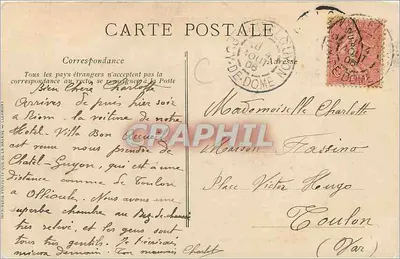 CARTE POSTALE
Correspondance
Adresse
Tous les pays étrangers n'acceptent pas la
correspondance au recto, se renseigner à la Poste
Bien Chère Charlotte
Arrivés depuis hier soir
à Riom. la voiture de notre
Hôtel - Villa Bon
est venue nous prendre de
Chatel-Guyon, qui est à une
distance comme de Toulon
à Ollioule. Nous avons une
superbe chambre au Rez-de-chaussée
très relevé, et les gens sont
tous très gentils. Je t'écrirai
mieux demain. Ton
Mademoiselle Charlotte
Maison Fassino
Place Victor Hugo
Toulon
(Var)
C
CPAPHIL
PUY-DE-DOME